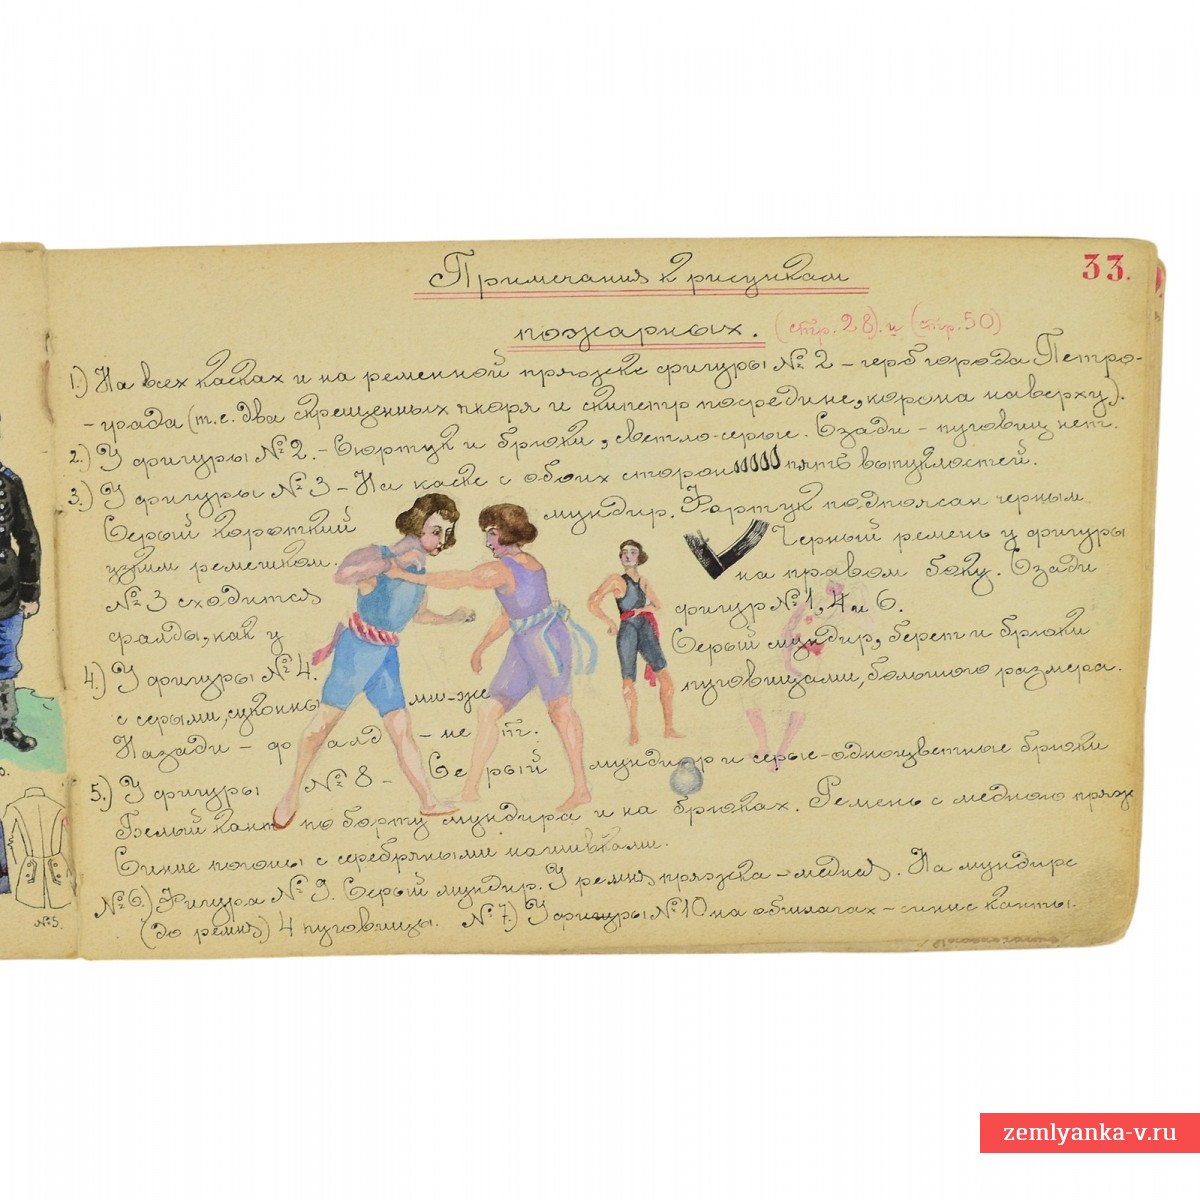 33.
Примечания к рисункам
пожарных. (стр. 28). и (стр. 50)
1.) На всех касках и на ременной пряжке фигуры № 2 – герб города Петро-
-града (т.е. два скрещенных якоря и скипетр посредине, корона наверху).
2.) У фигуры № 2. – Сюртук и брюки, светло-серые. Сзади – пуговиц нет.
3.) У фигуры № 3 – На каске с обоих сторон пять выпуклостей.
Серый короткий мундир. Фартук подпоясан черным
узким ремешком. Черный ремень у фигуры
№ 3 сходится на правом боку. Сзади
фалды, как у фигур № 1, 4 и 6.
4.) У фигуры № 4. Серый мундир, берет и брюки
с серыми, суконны ми-же пуговицами, большого размера.
Назади – фалд – нет.
5.) У фигуры № 8 – Серый мундир и серые-одноцветные брюки
Белый кант по борту мундира и на брюках. Ремень с медною пряж
Синие погоны с серебряными нашивками.
№ 6.) Фигура № 9. Серый мундир. У ремня пряжка – медная. На мундире
(до ремня) 4 пуговицы. № 7) У фигуры № 10 на обшлагах – синие канты.
№ 5.
zemlyanka-v.ru